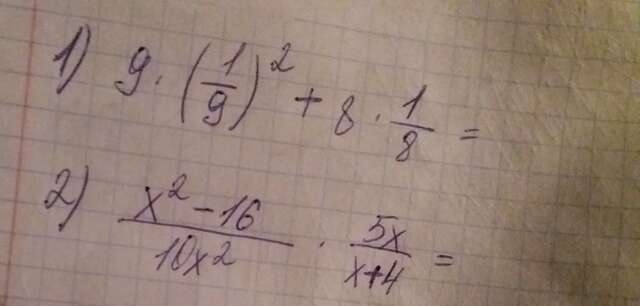 1) 9 · (1/9)² + 8 · 1/8 =
2) x² - 16 / 10x² · 5x / x+4 =